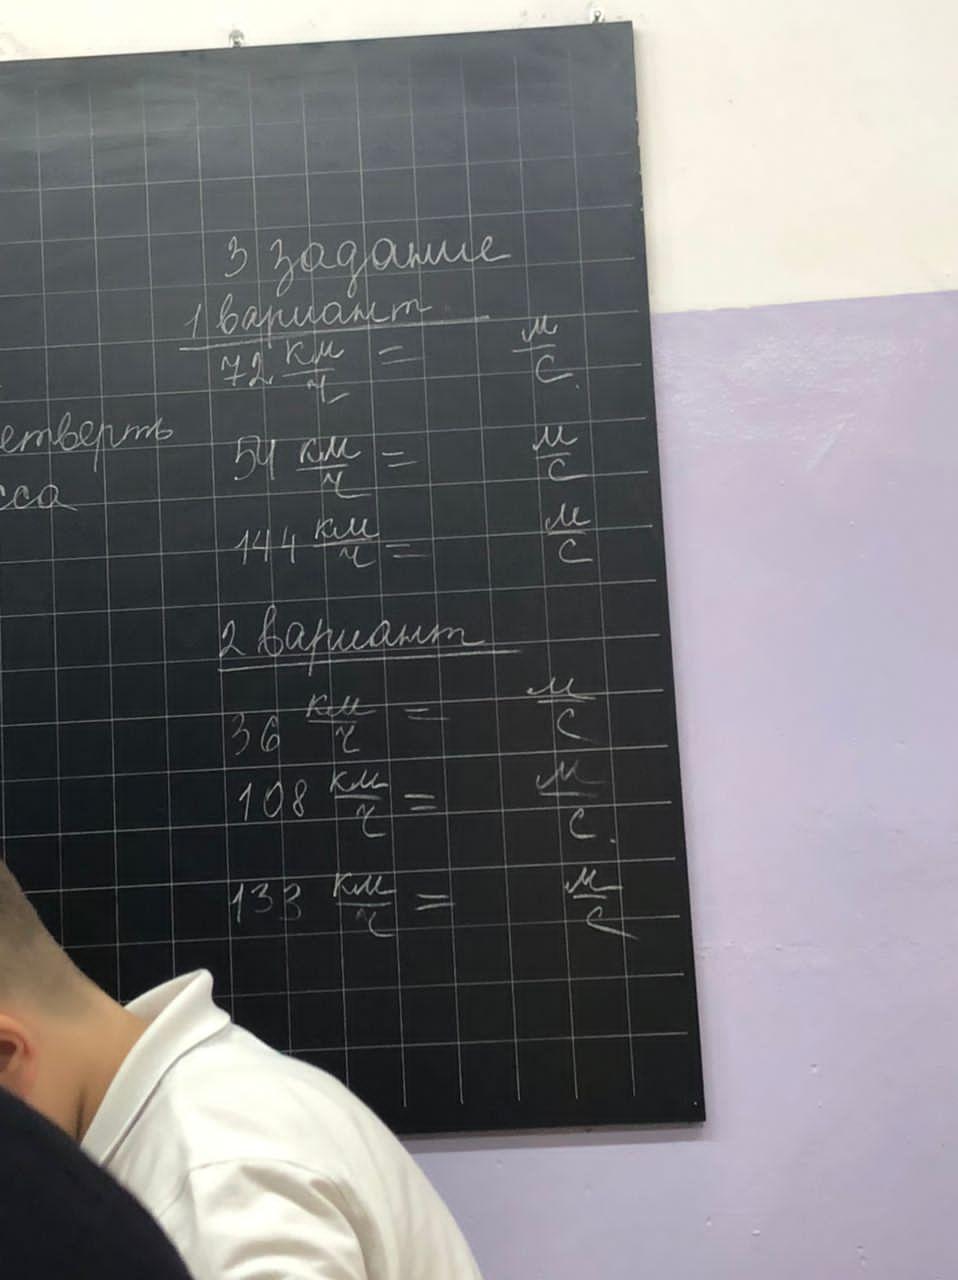 3 задание
1 вариант
72 км/ч = м/с.
етверть
54 км/ч = м/с
сса
144 км/ч = м/с
2 вариант
36 км/ч = м/с
108 км/ч = м/с.
133 км/ч = м/с